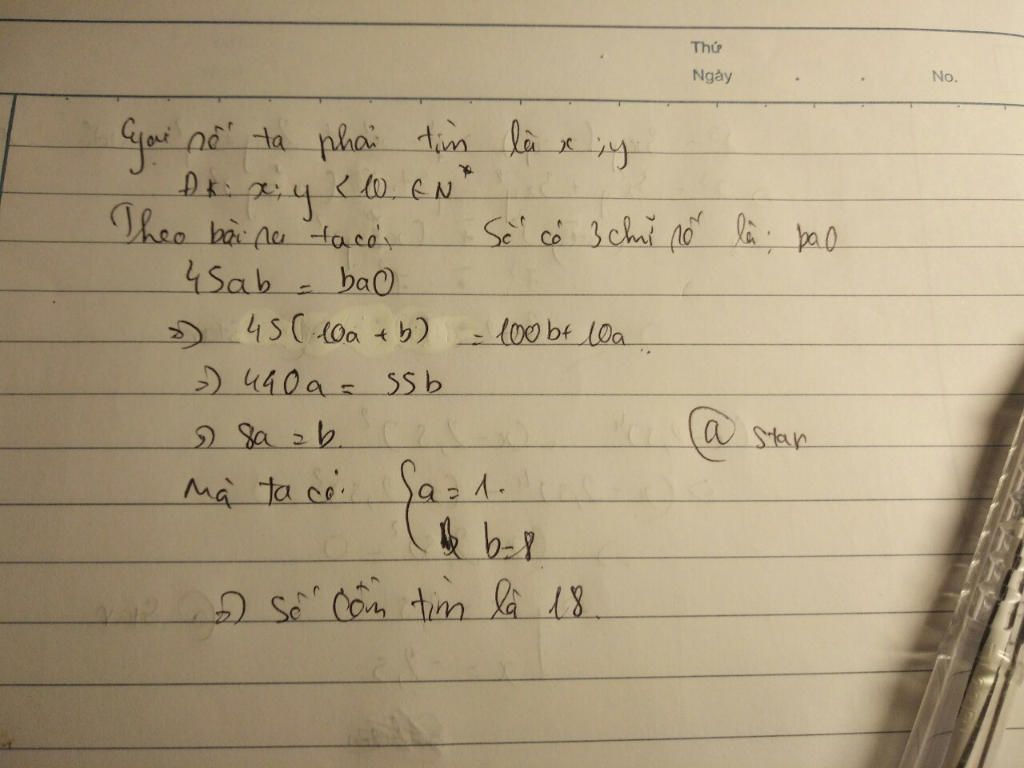 Thứ
Ngày . . No.
Gọi số ta phải tìm là x; y
ĐK: x; y < 10. ∈ N*
Theo bài ra ta có: Số có 3 chữ số là: ba0
45ab = ba0
=> 45(10a + b) = 100b + 10a
=> 440a = 55b
=> 8a = b.
@ star
Mà ta có: { a = 1.
b = 8
=> Số cần tìm là 18.